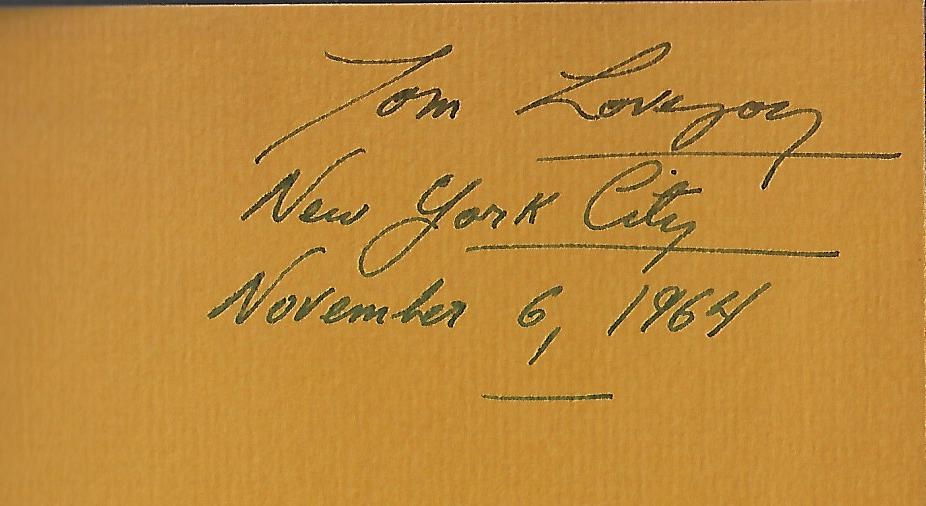 Tom Lovejoy
New York City
November 6, 1964